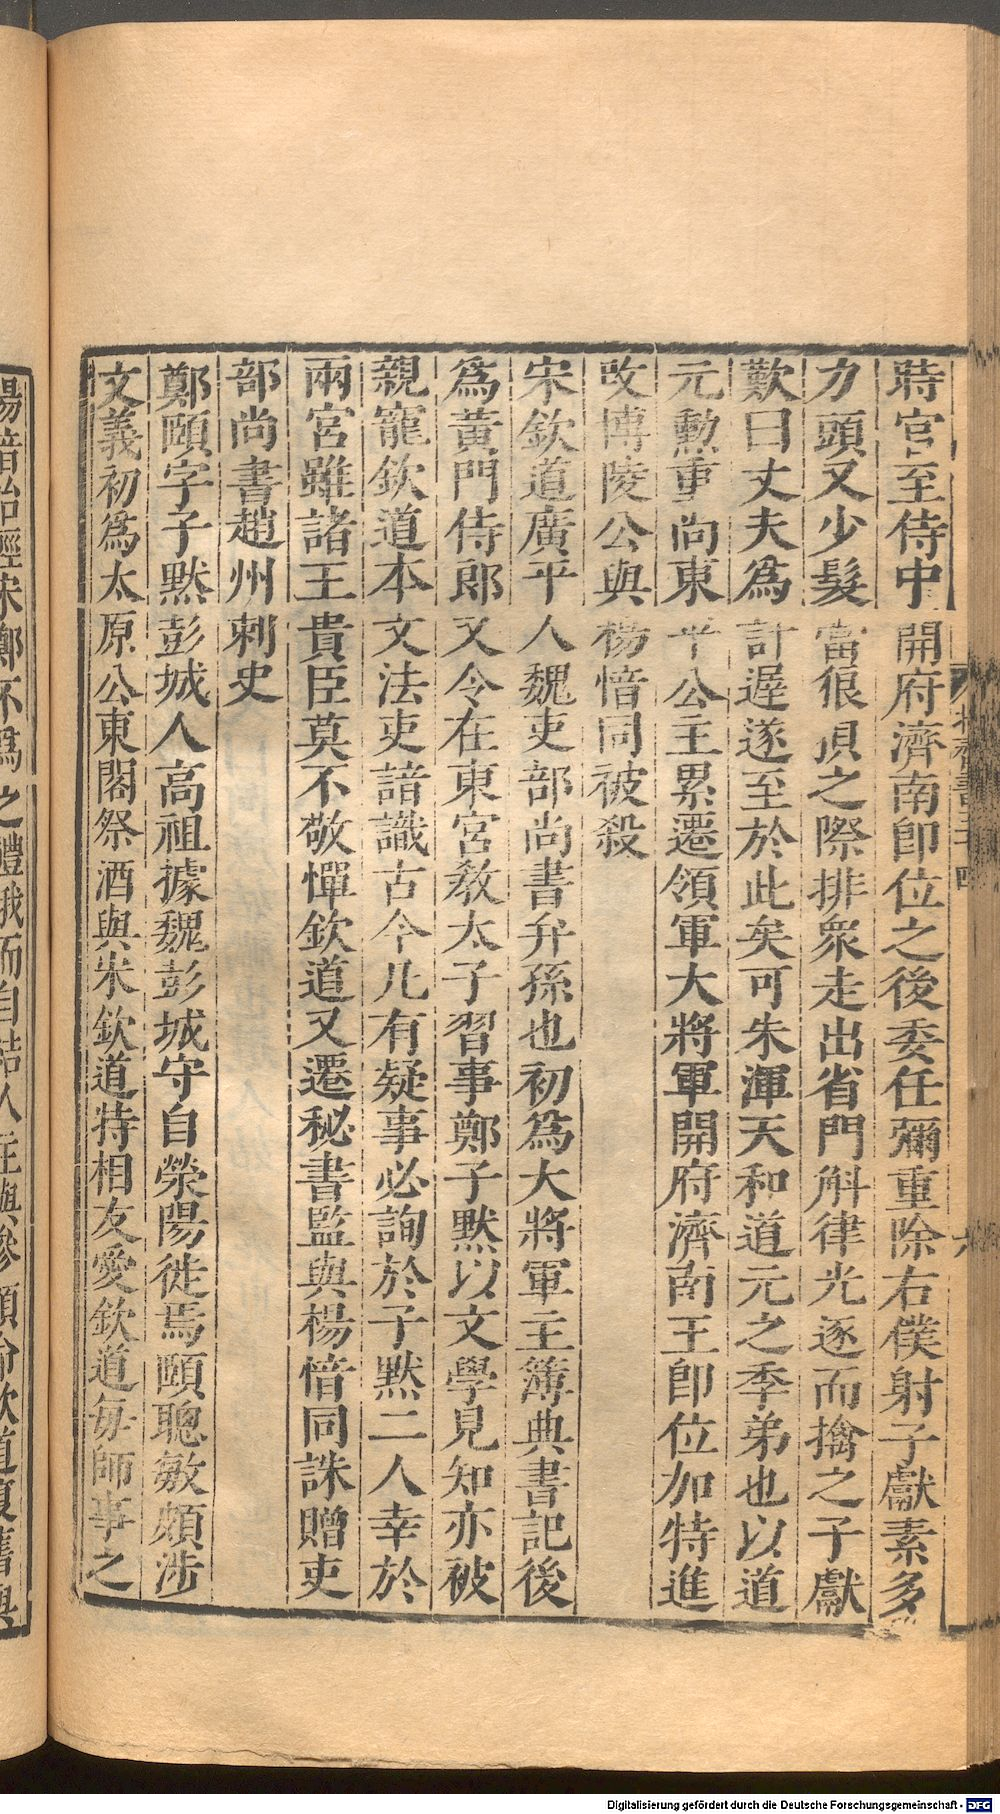 時官至侍中開府濟南卽位之後委任彌重除右僕射子獻素多
力頭又少髮當狼狽之際排衆走出省門斛律光逐而擒之子獻
歎曰丈夫爲計遲遂至於此矣可朱渾天和道元之季弟也以道
元勳重尚東平公主累遷領軍大將軍開府濟南王卽位加特進
改博陵公與楊愔同被殺
宋欽道廣平人魏吏部尚書弁孫也初爲大將軍主簿典書記後
爲黃門侍郎又令在東宮敎太子習事鄭子默以文學見知亦被
親寵欽道本文法吏諳識古今凡有疑事必詢於子默二人幸於
兩宮雖諸王貴臣莫不敬憚欽道又遷秘書監與楊愔同誅贈吏
部尚書趙州刺史
鄭頤字子默彭城人高祖據魏彭城守自滎陽徙焉頤聰敏頗涉
文義初爲太原公東閣祭酒與宋欽道特相友愛欽道每師事之
楊愔始輕宋鄭不爲之禮俄而自結人主與參顧命欽道復舊與
北齊書三十四
六
Digitalisierung gefördert durch die Deutsche Forschungsgemeinschaft - DFG